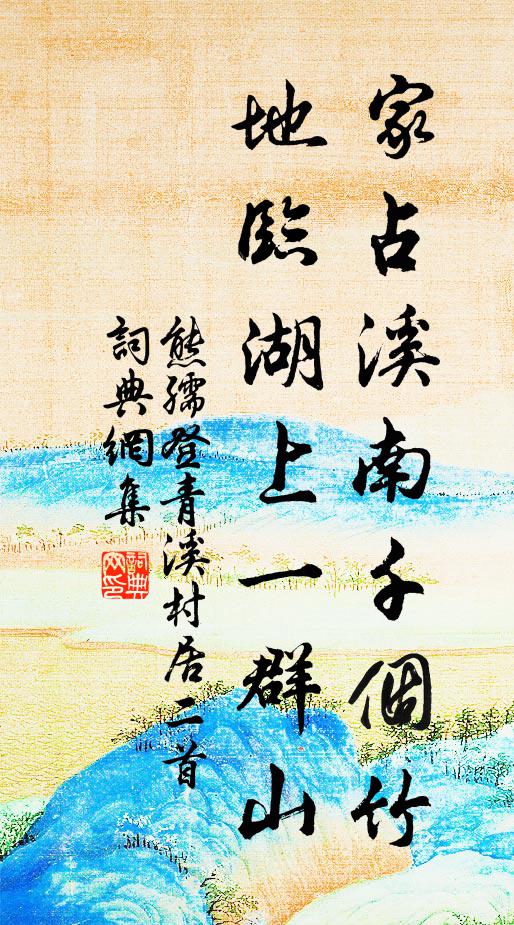 家占溪南千個竹
地臨湖上一群山
熊孺登青溪村居二首
詞典網集
詞典
网印